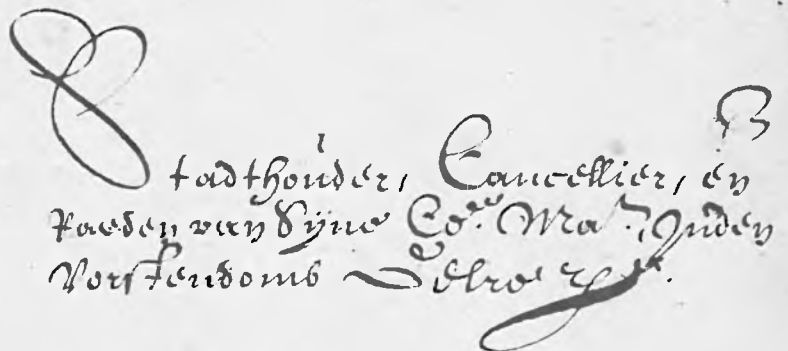 Stadthouder, Cancellier, en
Raeden van Syne Co.e Ma.t Inden
Vorstendoms Gelre etc.